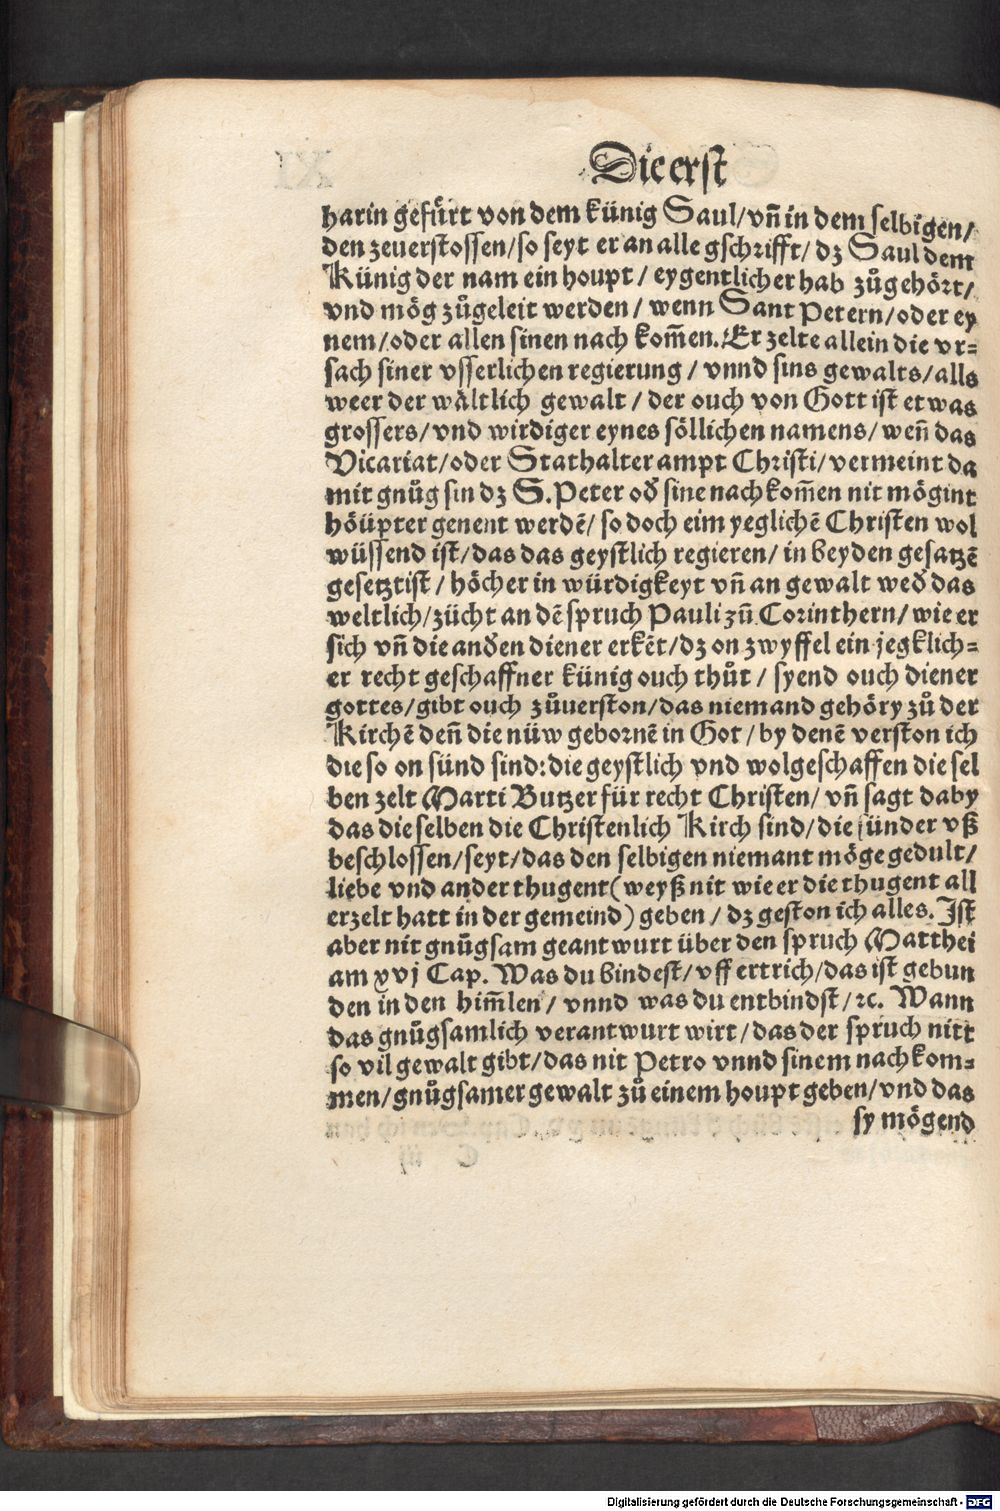 Die erst
harin gefürt von dem künig Saul/ vñ in dem selbigen/
den zeuerstossen/ so seyt er an alle gschrifft/ dz Saul dem
Künig der nam ein houpt/ eygentlicher hab zůgehört/
vnd mög zůgeleit werden/ wenn Sant Petern/ oder ey
nem/ oder allen sinen nach kom̃en. Er zelte allein die vr⸗
sach siner vsserlichen regierung/ vnnd sins gewalts/ alls
weer der wåltlich gewalt/ der ouch von Gott ist etwas
grossers/ vnd wirdiger eynes söllichen namens/ weñ das
Vicariat/ oder Stathalter ampt Christi/ vermeint da
mit gnůg sin dz S. Peter oď sine nachkom̃en nit mögint
höüpter genent werdẽ/ so doch eim yeglichẽ Christen wol
wüssend ist/ das das geystlich regieren/ in beyden gesatzẽ
gesetzt ist/ höcher in würdigkeyt vñ an gewalt weď das
weltlich/ zücht an dẽ spruch Pauli zũ Corinthern/ wie er
sich vñ die anďen diener erkẽt/ dz on zwyffel ein jegklich⸗
er recht geschaffner künig ouch thůt/ syend ouch diener
gottes/ gibt ouch zůuerston/ das niemand gehöry zů der
Kirchẽ deñ die nüw gebornẽ in Got/ by denẽ verston ich
die so on sünd sind: die geystlich vnd wolgeschaffen die sel
ben zelt Marti Butzer für recht Christen/ vñ sagt daby
das die selben die Christenlich Kirch sind/ die sünder vß
beschlossen/ seyt/ das den selbigen niemant möge gedult/
liebe vnd ander thugent (weyß nit wie er die thugent all
erzelt hatt in der gemeind) geben/ dz geston ich alles. Ist
aber nit gnůgsam geantwurt über den spruch Matthei
am xvj Cap. Was du bindest/ vff ertrich/ das ist gebun
den in den him̃len/ vnnd was du entbindst/ ⁊c. Wann
das gnůgsamlich verantwurt wirt/ das der spruch nitt
so vil gewalt gibt/ das nit Petro vnnd sinem nachkom⸗
men/ gnůgsamer gewalt zů einem houpt geben/ vnd das
sy mögend
Digitalisierung gefördert durch die Deutsche Forschungsgemeinschaft - DFG